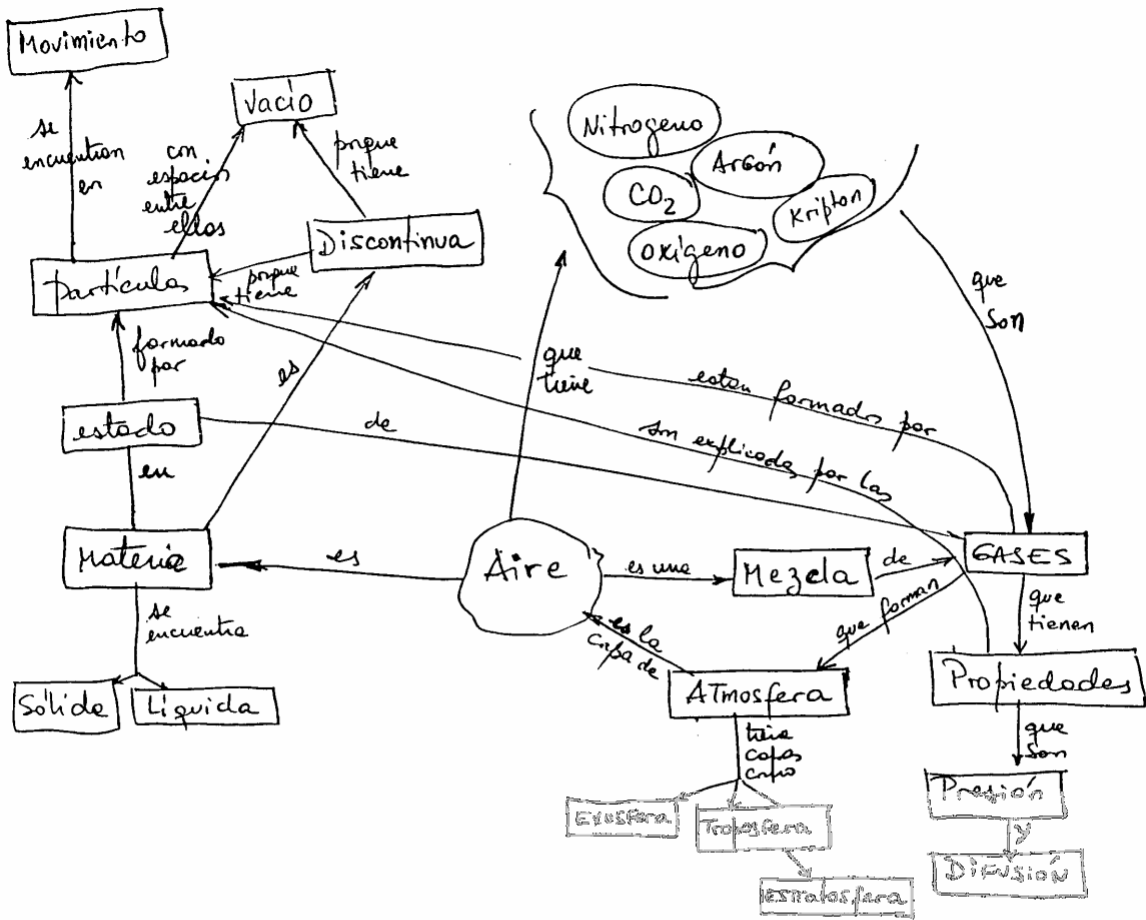 Movimiento
se
encuentran
en
Vacío
con
espacios
entre
ellos
porque
tiene
Discontinua
partículas
porque
tiene
formado
por
es
estado
en
Materia
se
encuentra
Sólida
Líquida
Nitrogeno
Argón
CO2
Kripton
oxígeno
que
tiene
que
son
estan formados por
son explicadas por las
de
es
Aire
es una
Mezcla
de
GASES
que forman
es la
capa de
ATmosfera
tiene
capas
como
Exosfera
Troposfera
estratosfera
que
tienen
Propiedades
que
son
Presión
y
DIFUSIÓN